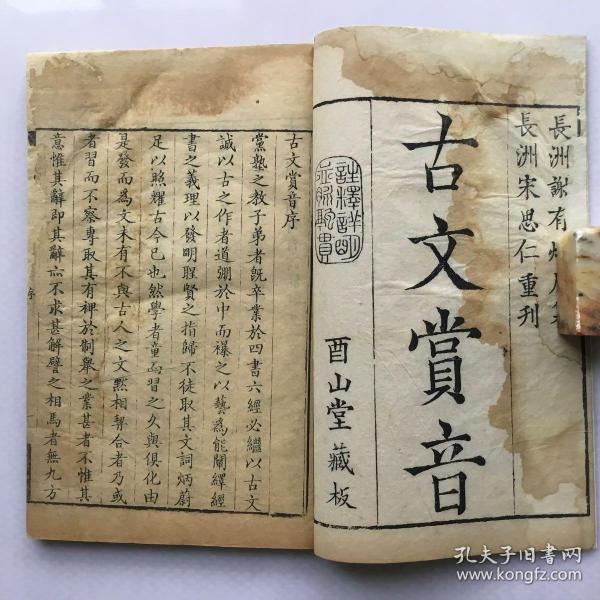 長洲謝有煇
長洲宋思仁重刊
古文賞音
註釋詳明
酉山堂藏板
古文賞音序
黨塾之教子弟者既卒業於四書六經必繼以古文
誠以古之作者道弸於中而襮之以藝為能闡繹經
書之義理以發明聖賢之指歸不徒取其文詞炳蔚
足以照耀古今已也然學者童而習之久與俱化由
是發而為文未有不與古人之文黙相契合者乃或
者習而不察專取其有裨於制舉之業甚者不惟其
意惟其辭即其辭亦不求甚解譬之相馬者無九方
序
孔夫子旧书网
www.kongfz.com